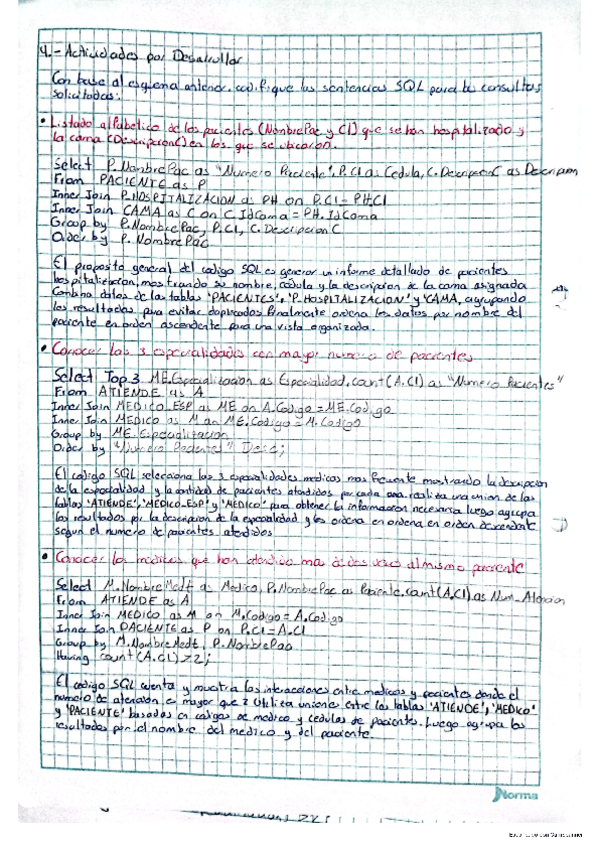 4.- Actividades por Desarrollar
Con base al esquema anterior, codifique las sentencias SQL para la consultas
solicitadas:
• Listado alfabetico de los pacientes (NombrePac y CI) que se han hospitalizado y
la cama (DescripcionC) en los que se ubicaron.
Select P.NombrePac as "Numero Paciente", P.CI as Cedula, C.DescripcionC as Descripcion
From PACIENTE as P
Inner Join P.HOSPITALIZACION as PH on P.CI = PH.CI
Inner Join CAMA as C on C.IdCama = PH.IdCama
Group by P.NombrePac, P.CI, C.DescripcionC
Order by P.NombrePac
El proposito general del codigo SQL es generar un informe detallado de pacientes
hospitalizacion, mostrando su nombre, cedula y la descripcion de la cama asignada
Combina datos de las tablas 'PACIENTES', 'P.HOSPITALIZACION' y 'CAMA, agrupando
los resultados para evitar duplicados Finalmente ordena los datos por nombre del
paciente en orden ascendente para una vista organizada.
• Conocer las 3 especialidades con mayor numero de pacientes
Select Top 3 ME.Especializacion as Especialidad, count(A.CI) as "Numero Pacientes"
From ATIENDE as A
Inner Join MEDICO_ESP as ME on A.Codigo = ME.Codigo
Inner Join MEDICO as M on ME.Codigo = M.Codigo
Group by ME.Especializacion
Order by "Numero Pacientes" Desc;
El codigo SQL selecciona las 3 especialidades medicas mas frecuente mostrando la descripcion
de la especialidad y la cantidad de pacientes atendidos por cada una. realiza una union de las
tablas 'ATIENDE', 'MEDICO-ESP' y 'MEDICO' para obtener la informacion necesaria luego agrupa
los resultados por la descripcion de la especialidad y los ordena en ordena en orden descendente
segun el numero de pacientes atendidos
• Conocer los medicos que han atendido mas de dos veces al mismo paciente
Select M.NombreMedt as Medico, P.NombrePac as Paciente, count(A.CI) as Num_Atencion
From ATIENDE as A
Inner Join MEDICO as M on M.Codigo = A.Codigo
Inner Join PACIENTE as P on P.CI = A.CI
Group by M.NombreMedt, P.NombrePac
Having count(A.CI) > 2;
El codigo SQL cuenta y muestra las interacciones entre medicos y pacientes donde el
numero de atencion es mayor que 2 Utiliza uniones entre las tablas 'ATIENDE', 'MEDICO'
y 'PACIENTE' basados en codigos de medico y cedulas de pacientes. Luego agrupa los
resultados por el nombre del medico y del paciente.
Norma